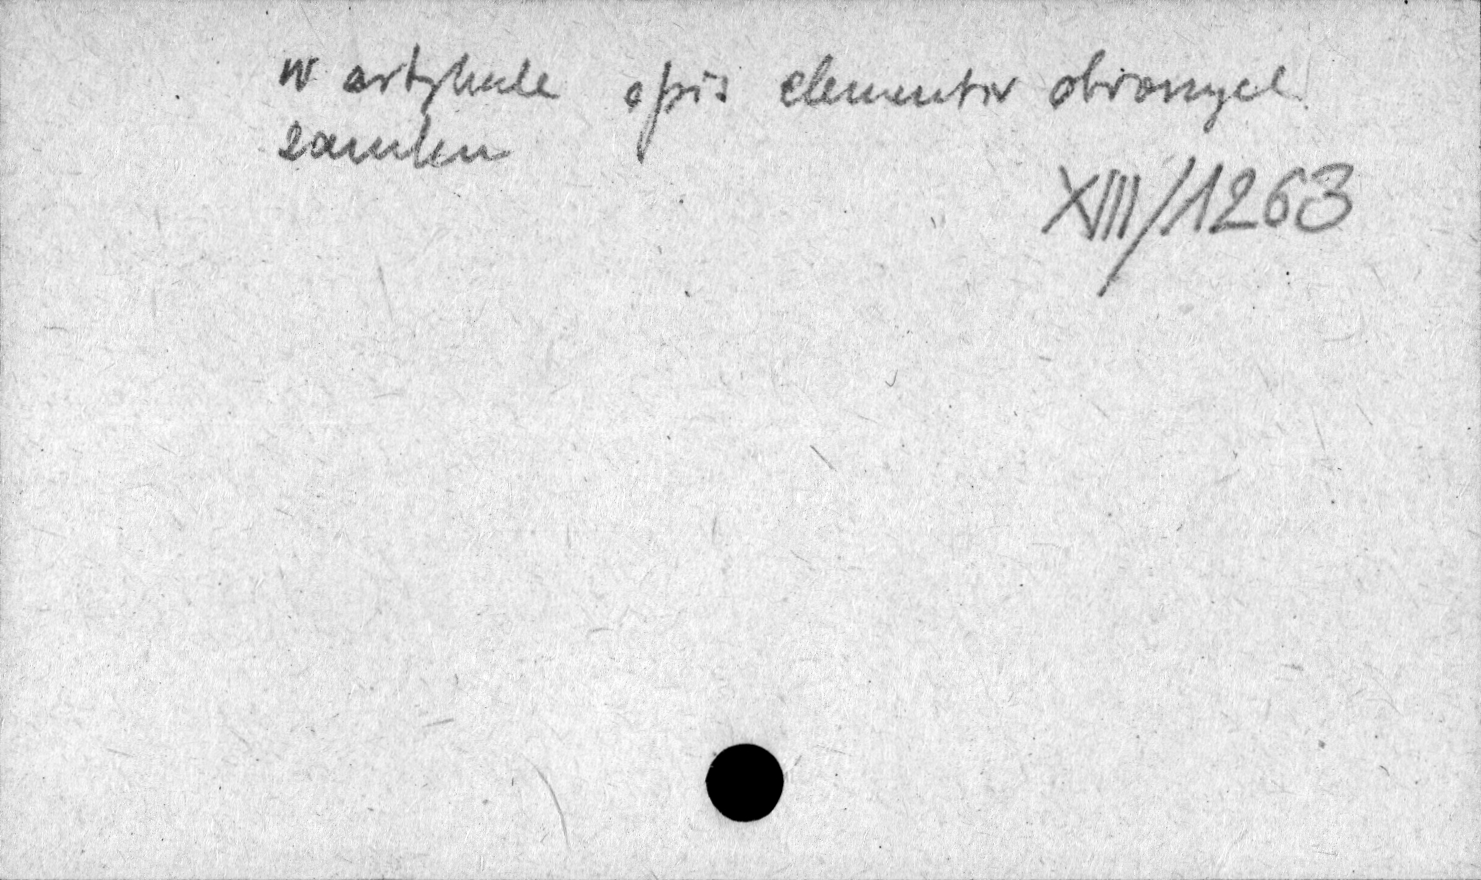 w artykule opis elementów obronnych
zamku
XIII/1263